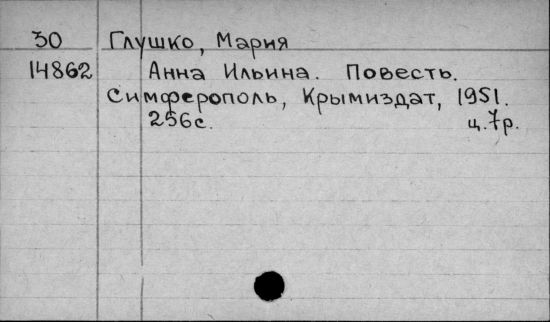 30 Глушко, Мария
14862 Анна Ильина. Повесть.
Симферополь, Крымиздат, 1951.
256с. ц.7р.